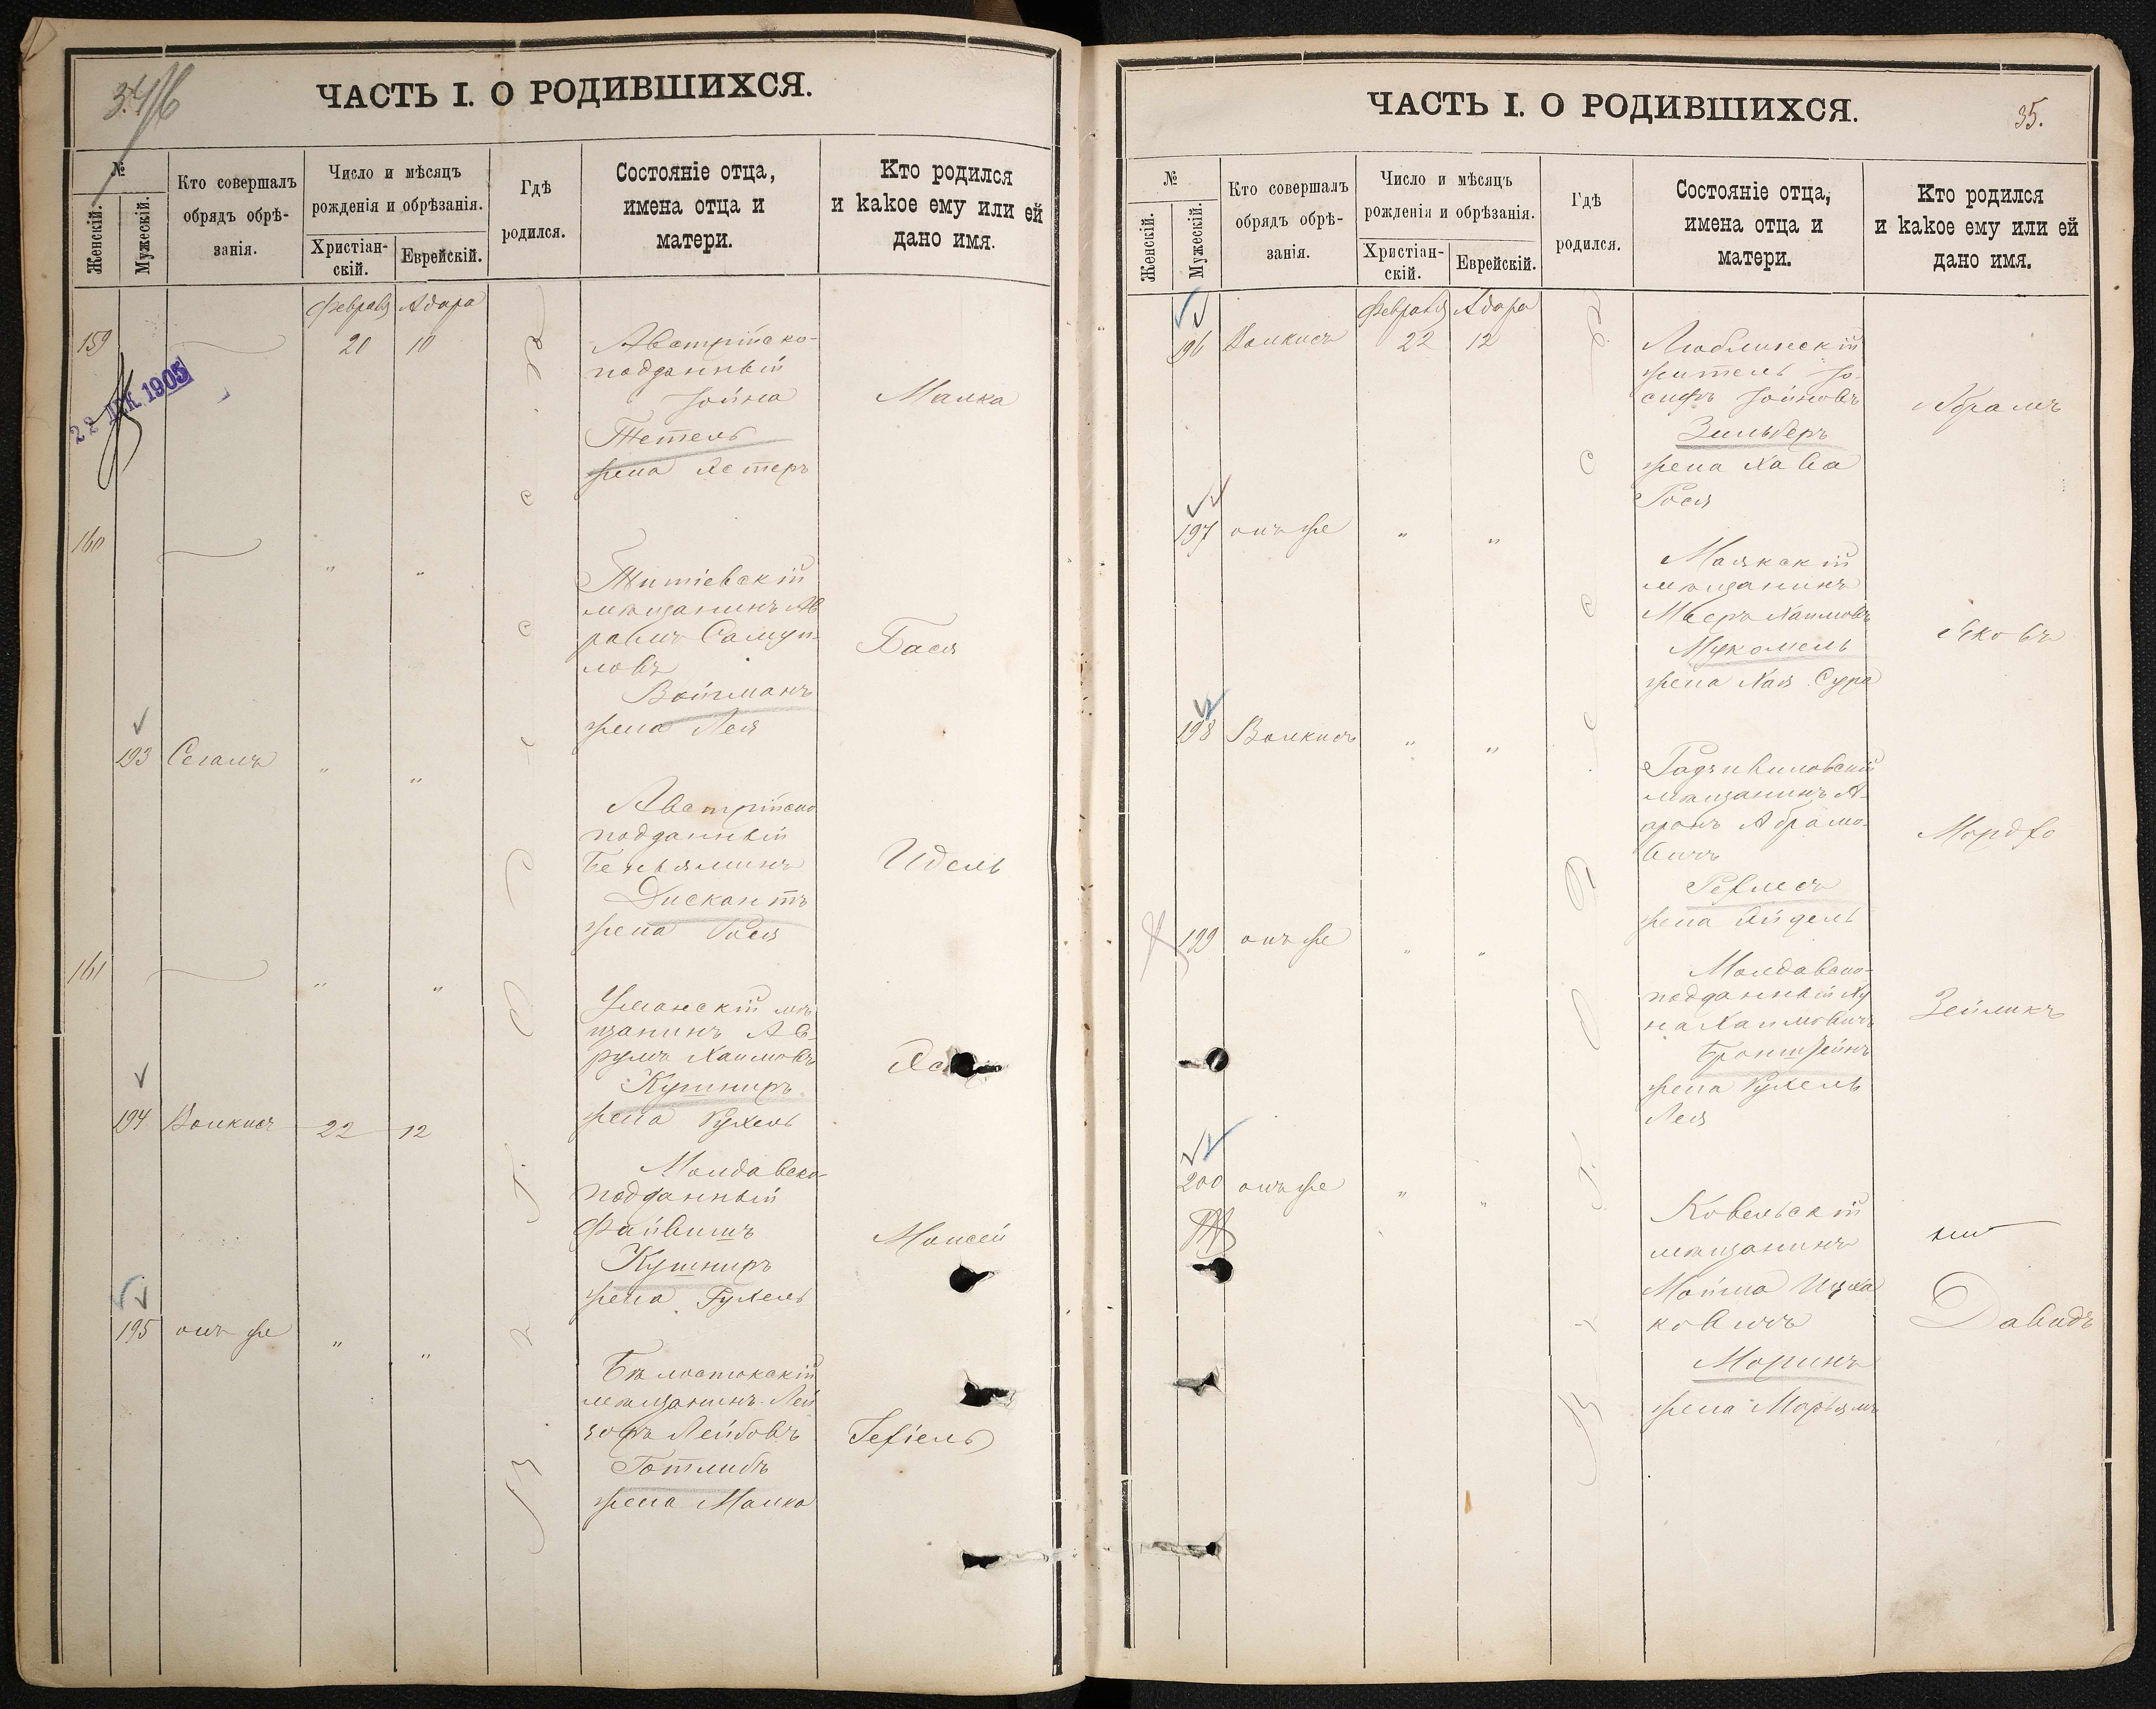 ЧАСТЬ I. О РОДИВШИХСЯ.
№
Женскій.
Мужескій.
Кто совершалъ
обрядъ обрѣ-
занія.
Число и мѣсяцъ
рожденія и обрѣзанія.
Христіан-
скій.
Еврейскій.
Гдѣ
родился.
Состояніе отца,
имена отца и
матери.
Кто родился
и какое ему или ей
дано имя.
Адара
159
20 10
22 ДЕК. 1905
Австрійско-
подданный
Іойна
Тетель
жена Эстеръ
Малка
160
" "
мѣщанинъ Ав
рамъ Самуи-
ловъ
Войтманъ
жена Лея
Бася
193 Сегалъ " "
Австрійско
подданный
Беньяминъ
Дискантъ
жена Рося
Идель
161
" "
Уманскій мѣ
щанинъ Ав-
румъ Хаимовъ
Кушниръ
жена Рухель
194 Волкисъ 22 12
Молдавско-
подданный
Файвишъ
Кушниръ
жена Рухель
Моисей
195 онъ же " "
Бѣлостокскій
мѣщанинъ Лей
зоръ Лейбовъ
Готлибъ
жена Малка
ЧАСТЬ I. О РОДИВШИХСЯ.
35.
№
Женскій.
Мужескій.
Кто совершалъ
обрядъ обрѣ-
занія.
Число и мѣсяцъ
рожденія и обрѣзанія.
Христіан-
скій.
Еврейскій.
Гдѣ
родился.
Состояніе отца,
имена отца и
матери.
Кто родился
и какое ему или ей
дано имя.
Адара
196 Волкисъ 22 12
Люблинскій
житель Іо-
сифъ Іойновъ
Зильберъ
жена Хава
Рося
Абрамъ
197 онъ же " "
Маякскій
мѣщанинъ
Мееръ Хаимовъ
Мукомель
жена Хая Сура
Яковъ
198 Волкисъ " "
Радзивиловскій
мѣщанинъ А-
аронъ Абрамо-
вичъ
жена Эйдель
Мордко
199 онъ же " "
Молдавско-
подданный Ну
на Хаимовичъ
Бронштейнъ
жена Рухель
Лея
Зейликъ
200 онъ же " "
Ковельскій
мѣщанинъ
Мойша Ицка
ковичъ
Моринъ
жена Марьямъ
Давидъ